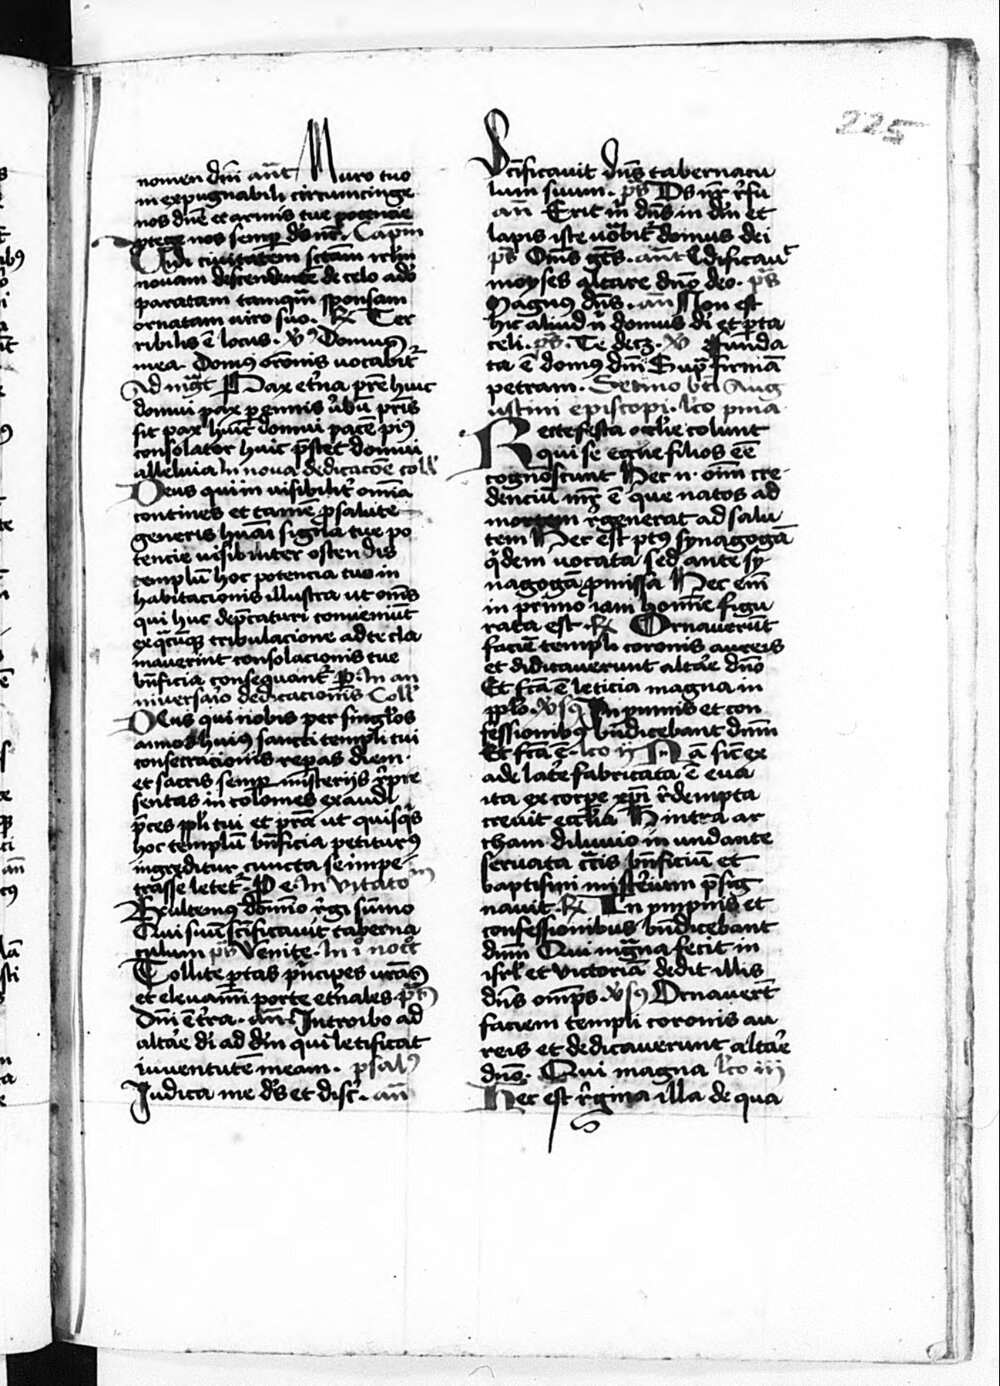 225
nomen dn̄i an̄t Muro tuo
inexpugnabili circumcinge
nos dn̄e et armis tue potencie
ꝓtege nos semꝑ ds̄ nr̄. Capm̄
Vidi ciuitatem sctām ierlm̄
nouam descendentē de celo a do̅
paratam tamquā sponsam
ornatam uiro suo. R̄ Ter
ribilis ē locus. v̄s Domus
mea. Domus or̄onis uocabit᷑
Ad mgt̄ Pax et̓na pr̄e huic
domui pax ꝑennis v̓bū pr̄is
sit pax huic domui pacē pius
consolator huic p̄stet domui
alleluia In noua dedicacōe coll̄
Deus qui inuisibilit̓ om̄ia
contines et tamē ꝓ salute
generis hūani signa tue po
tencie uisibiliter ostendis
templū hoc potencia tua in
habitacionis illustra ut om̄s
qui huc dep̄caturi conueniūt
ex q̄cūqꝫ tribulacione ad te cla
mauerint consolacionis tue
bn̄ficia consequant᷑ P. In an
niuersario dedicacionis Coll̄
Deus qui nobis per singl̓os
annos huius sancti templi tui
consecracionis reparas diem
et sacris semꝑ misterijs r̓pre
sentas incolomes exaudi
p̄ces ppl̓i tui et p̄sta ut quisqs̓
hoc templū bn̄ficia petiturus
ingreditur cuncta se impe
trasse letet᷑. P e. Inuitatoᵐ
Exultemus domino r̓gi sūmo
Qui suū sc̄ificauit taberna
culum ps̄ Venite. In i noct̄
Tollite ꝑtas p̓ncipes ur̄as
et eleuamī porte et̓nales. ps̄
Dn̄i ē t̓ra. an̄. Introibo ad
altare di̅ ad dm̄ qui letificat
iuuentutē meam. psalꝰ
Iudica me ds̄ et disc̓. an̄
Sc̄ificauit dn̄s tabernacu
lum suum. ps̄ Ds nr̄ r̓fu
an̄ Erit m̓ dn̄s in dm̄ et
lapis iste uo̓bit᷑ domus dei
ps̄ Om̄s gt̄s. an̄t Edificauᵗ
moyses altare dn̄o deo. ps̄
Magnus dn̄s. an̄ Non est
hic aliud n̓ domus di̅ et ꝑta
celi. ps̄. Te decꝫ. v̄ Funda
ta ē domus dn̄i Supᵃ firmā
petram. Sermo bt̄i Aug
ustini episcopi. lc̓o pma
Recte festa ecclīe colunt
qui se ecclīe filios eē
cognoscunt Hec n. oīm cre
denciū mr̄ ē que natos ad
mortem r̓generat ad salu
tem Hec est ptꝰ synagogā
q̓dem uocata sed ante sy
nagogā ꝓmissa Hec enī
in primo iam homīe figu
rata est. R̄ Ornauerūt
faciē templi coronis aureis
et didicauerunt altar̓e dn̄o
Et fc̄a ē leticia magna in
ppl̓o. v̄sus In ymnis et con
fessionibꝰ bn̄dicebant dn̄m
Et fc̄a ē. lc̓o ij Nā sic̄ ex
ade late̓ fabricata ē eua
ita ex corpe xp̄i r̓dempta
creuit ecclīa Hᵉ intra ar
cham diluuio inundante
seruata cr̄cis bn̄ficiū et
baptismi misterium p̄sig
nauit. R̄ In ympnis et
confessionibus bn̄dicebant
dn̄m Qui māgna fecit in
isrl̓ et victoriā dedit illis
dn̄s om̄ps. v̄sus Ornauert̄
faciem templi coronis au
reis et dedicauerunt altar̓e
dn̄o. Qui magna lc̓o iij
Hec est r̓gina illa de qua